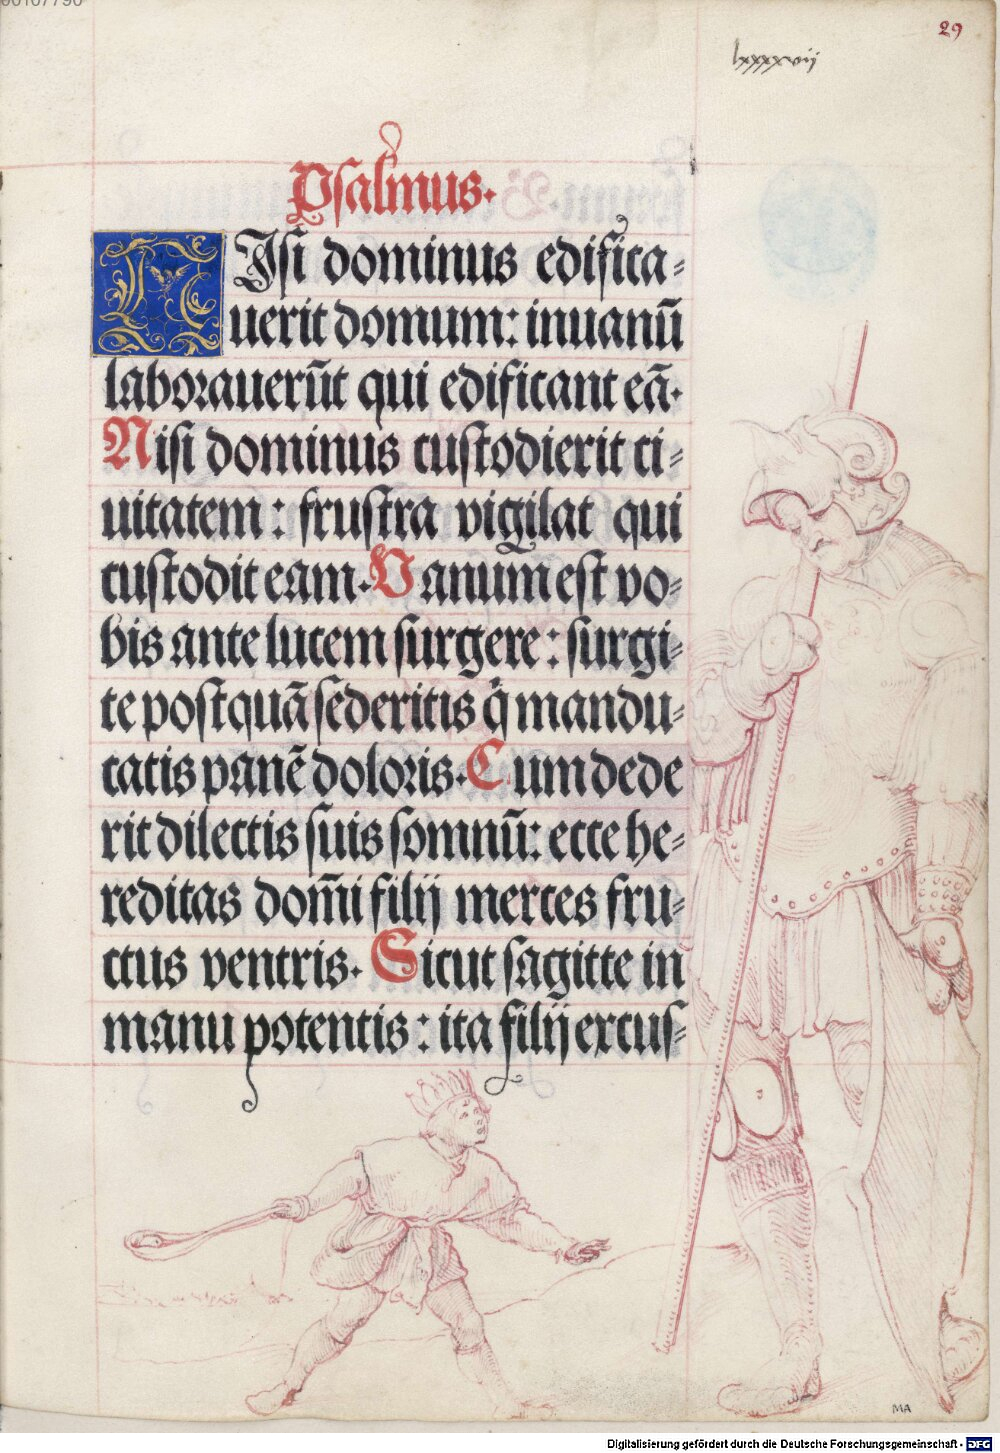 00107790
29
lxxxxvij
Psalmus.
NIsi dominus edifica=
uerit domum: inuanū
laborauerūt qui edificant eā.
Nisi dominus custodierit ci=
uitatem: frustra vigilat qui
custodit eam. Vanum est vo=
bis ante lucem surgere: surgi=
te postquā sederitis q̄ mandu=
catis panē doloris. Cum dede
rit dilectis suis somnū: ecce he=
reditas dom̄i filij merces fru=
ctus ventris. Sicut sagitte in
manu potentis: ita filij excus=
MA
Digitalisierung gefördert durch die Deutsche Forschungsgemeinschaft - DFG